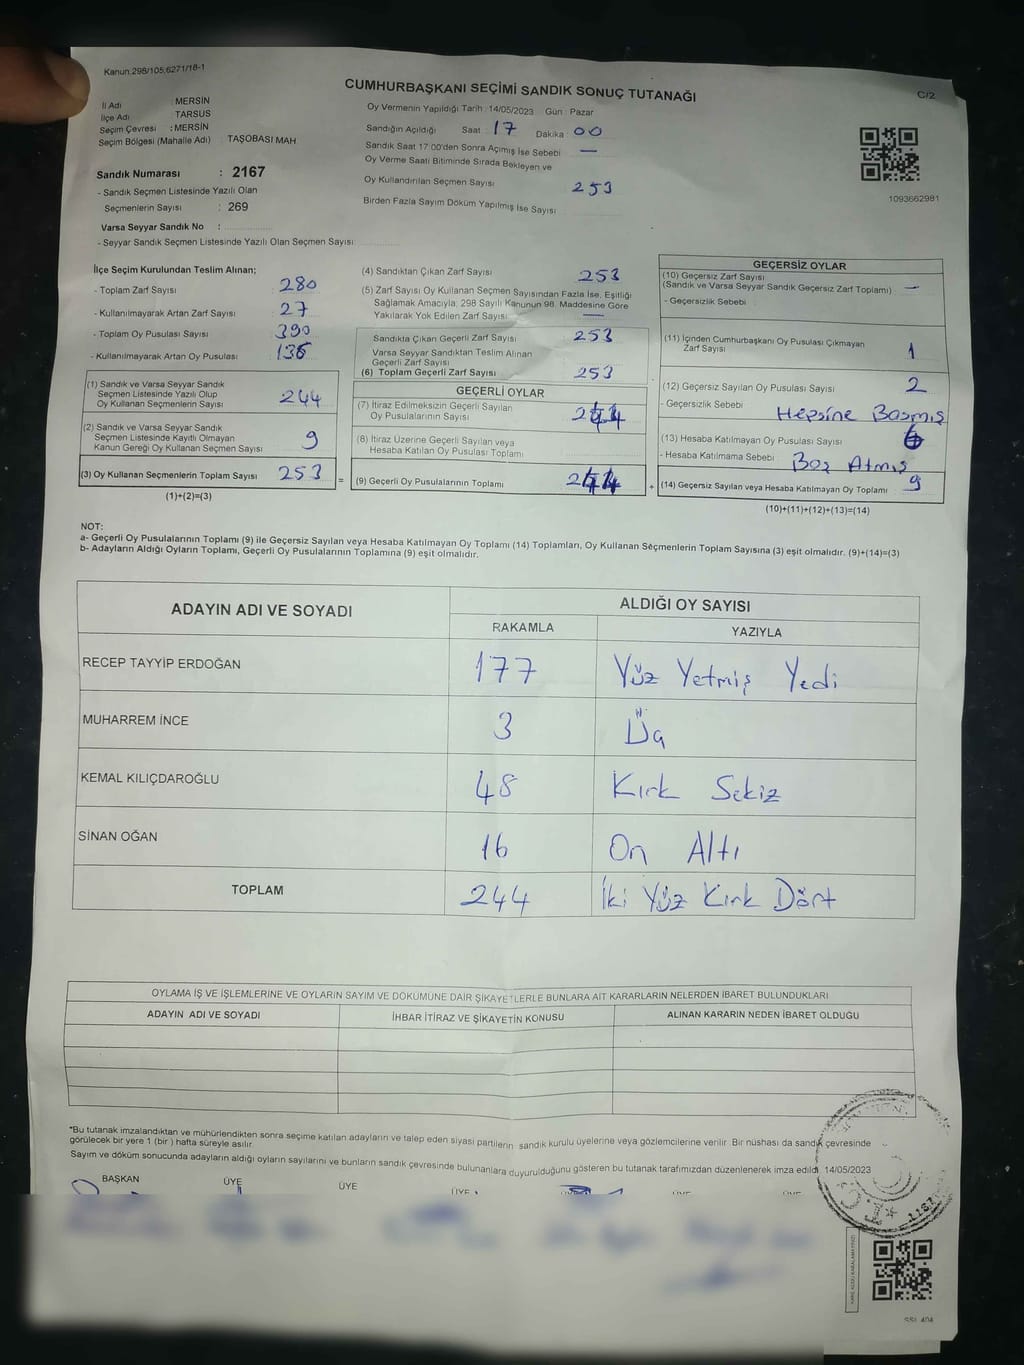 Kanun:298/105;6271/18-1
C/2
CUMHURBAŞKANI SEÇİMİ SANDIK SONUÇ TUTANAĞI
İl Adı : MERSİN
İlçe Adı : TARSUS
Seçim Çevresi : MERSİN
Seçim Bölgesi (Mahalle Adı) : TAŞOBASI MAH
Sandık Numarası : 2167
- Sandık Seçmen Listesinde Yazılı Olan
Seçmenlerin Sayısı : 269
Varsa Seyyar Sandık No :
- Seyyar Sandık Seçmen Listesinde Yazılı Olan Seçmen Sayısı:
Oy Vermenin Yapıldığı Tarih :14/05/2023 Gün : Pazar
Sandığın Açıldığı Saat : 17 Dakika : 00
Sandık Saat 17:00'den Sonra Açımış İse Sebebi —
Oy Verme Saati Bitiminde Sırada Bekleyen ve
Oy Kullandırılan Seçmen Sayısı 253
Birden Fazla Sayım Döküm Yapılmış İse Sayısı
1093662981
İlçe Seçim Kurulundan Teslim Alınan;
- Toplam Zarf Sayısı : 280
- Kullanılmayarak Artan Zarf Sayısı : 27
- Toplam Oy Pusulası Sayısı : 390
- Kullanılmayarak Artan Oy Pusulası : 136
(1) Sandık ve Varsa Seyyar Sandık
Seçmen Listesinde Yazılı Olup
Oy Kullanan Seçmenlerin Sayısı 244
(2) Sandık ve Varsa Seyyar Sandık
Seçmen Listesinde Kayıtlı Olmayan
Kanun Gereği Oy Kullanan Seçmen Sayısı 9
(3) Oy Kullanan Seçmenlerin Toplam Sayısı 253
(1)+(2)=(3)
=
(4) Sandıktan Çıkan Zarf Sayısı 253
(5) Zarf Sayısı Oy Kullanan Seçmen Sayısından Fazla İse, Eşitliği
Sağlamak Amacıyla; 298 Sayılı Kanunun 98. Maddesine Göre
Yakılarak Yok Edilen Zarf Sayısı —
Sandıkta Çıkan Geçerli Zarf Sayısı 253
Varsa Seyyar Sandıktan Teslim Alınan
Geçerli Zarf Sayısı
(6) Toplam Geçerli Zarf Sayısı 253
GEÇERLİ OYLAR
(7) İtiraz Edilmeksizin Geçerli Sayılan
Oy Pusulalarının Sayısı 244
(8) İtiraz Üzerine Geçerli Sayılan veya
Hesaba Katılan Oy Pusulası Toplamı
(9) Geçerli Oy Pusulalarının Toplamı 244
+
GEÇERSİZ OYLAR
(10) Geçersiz Zarf Sayısı
(Sandık ve Varsa Seyyar Sandık Geçersiz Zarf Toplamı) —
- Geçersizlik Sebebi :
(11) İçinden Cumhurbaşkanı Oy Pusulası Çıkmayan
Zarf Sayısı 1
(12) Geçersiz Sayılan Oy Pusulası Sayısı 2
- Geçersizlik Sebebi : Hepsine Basmış
(13) Hesaba Katılmayan Oy Pusulası Sayısı 6
- Hesaba Katılmama Sebebi : Boş Atmış
(14) Geçersiz Sayılan veya Hesaba Katılmayan Oy Toplamı 9
(10)+(11)+(12)+(13)=(14)
NOT:
a- Geçerli Oy Pusulalarının Toplamı (9) ile Geçersiz Sayılan veya Hesaba Katılmayan Oy Toplamı (14) Toplamları, Oy Kullanan Seçmenlerin Toplam Sayısına (3) eşit olmalıdır. (9)+(14)=(3)
b- Adayların Aldığı Oyların Toplamı, Geçerli Oy Pusulalarının Toplamına (9) eşit olmalıdır.
ADAYIN ADI VE SOYADI ALDIĞI OY SAYISI
RAKAMLA YAZIYLA
RECEP TAYYİP ERDOĞAN 177 Yüz Yetmiş Yedi
MUHARREM İNCE 3 Üç
KEMAL KILIÇDAROĞLU 48 Kırk Sekiz
SİNAN OĞAN 16 On Altı
TOPLAM 244 İki Yüz Kırk Dört
OYLAMA İŞ VE İŞLEMLERİNE VE OYLARIN SAYIM VE DÖKÜMÜNE DAİR ŞİKAYETLERLE BUNLARA AİT KARARLARIN NELERDEN İBARET BULUNDUKLARI
ADAYIN ADI VE SOYADI İHBAR İTİRAZ VE ŞİKAYETİN KONUSU ALINAN KARARIN NEDEN İBARET OLDUĞU
*Bu tutanak imzalandıktan ve mühürlendikten sonra seçime katılan adayların ve talep eden siyasi partilerin sandık kurulu üyelerine veya gözlemcilerine verilir. Bir nüshası da sandık çevresinde
görülecek bir yere 1 (bir ) hafta süreyle asılır.
Sayım ve döküm sonucunda adayların aldığı oyların sayılarını ve bunların sandık çevresinde bulunanlara duyurulduğunu gösteren bu tutanak tarafımızdan düzenlenerek imza edildi. 14/05/2023
BAŞKAN ÜYE ÜYE ÜYE ÜYE ÜYE
T.C.